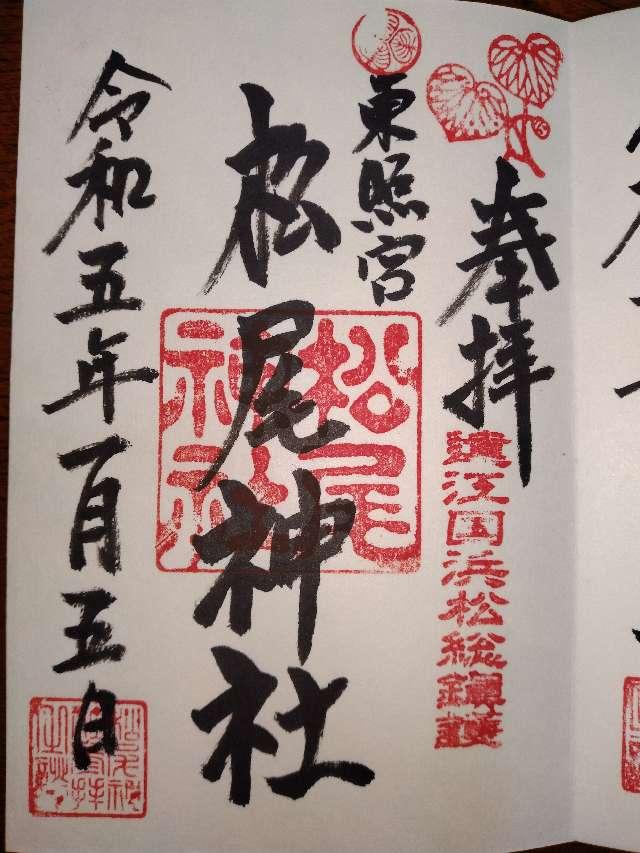 奉拝
遠江国浜松総鎮護
東照宮
松尾神社
松尾神社
令和五年一月五日